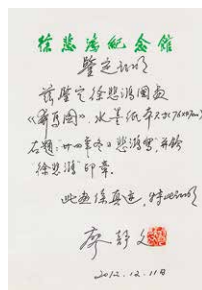 徐悲鸿纪念館
鉴定证明
兹鉴定徐悲鸿国画
《奔马图》水墨纸本
右题:廿四年冬日悲鸿写,并钤
徐悲鸿 印章。
此画系真迹,特此证明
廖静文
2012.12.11日